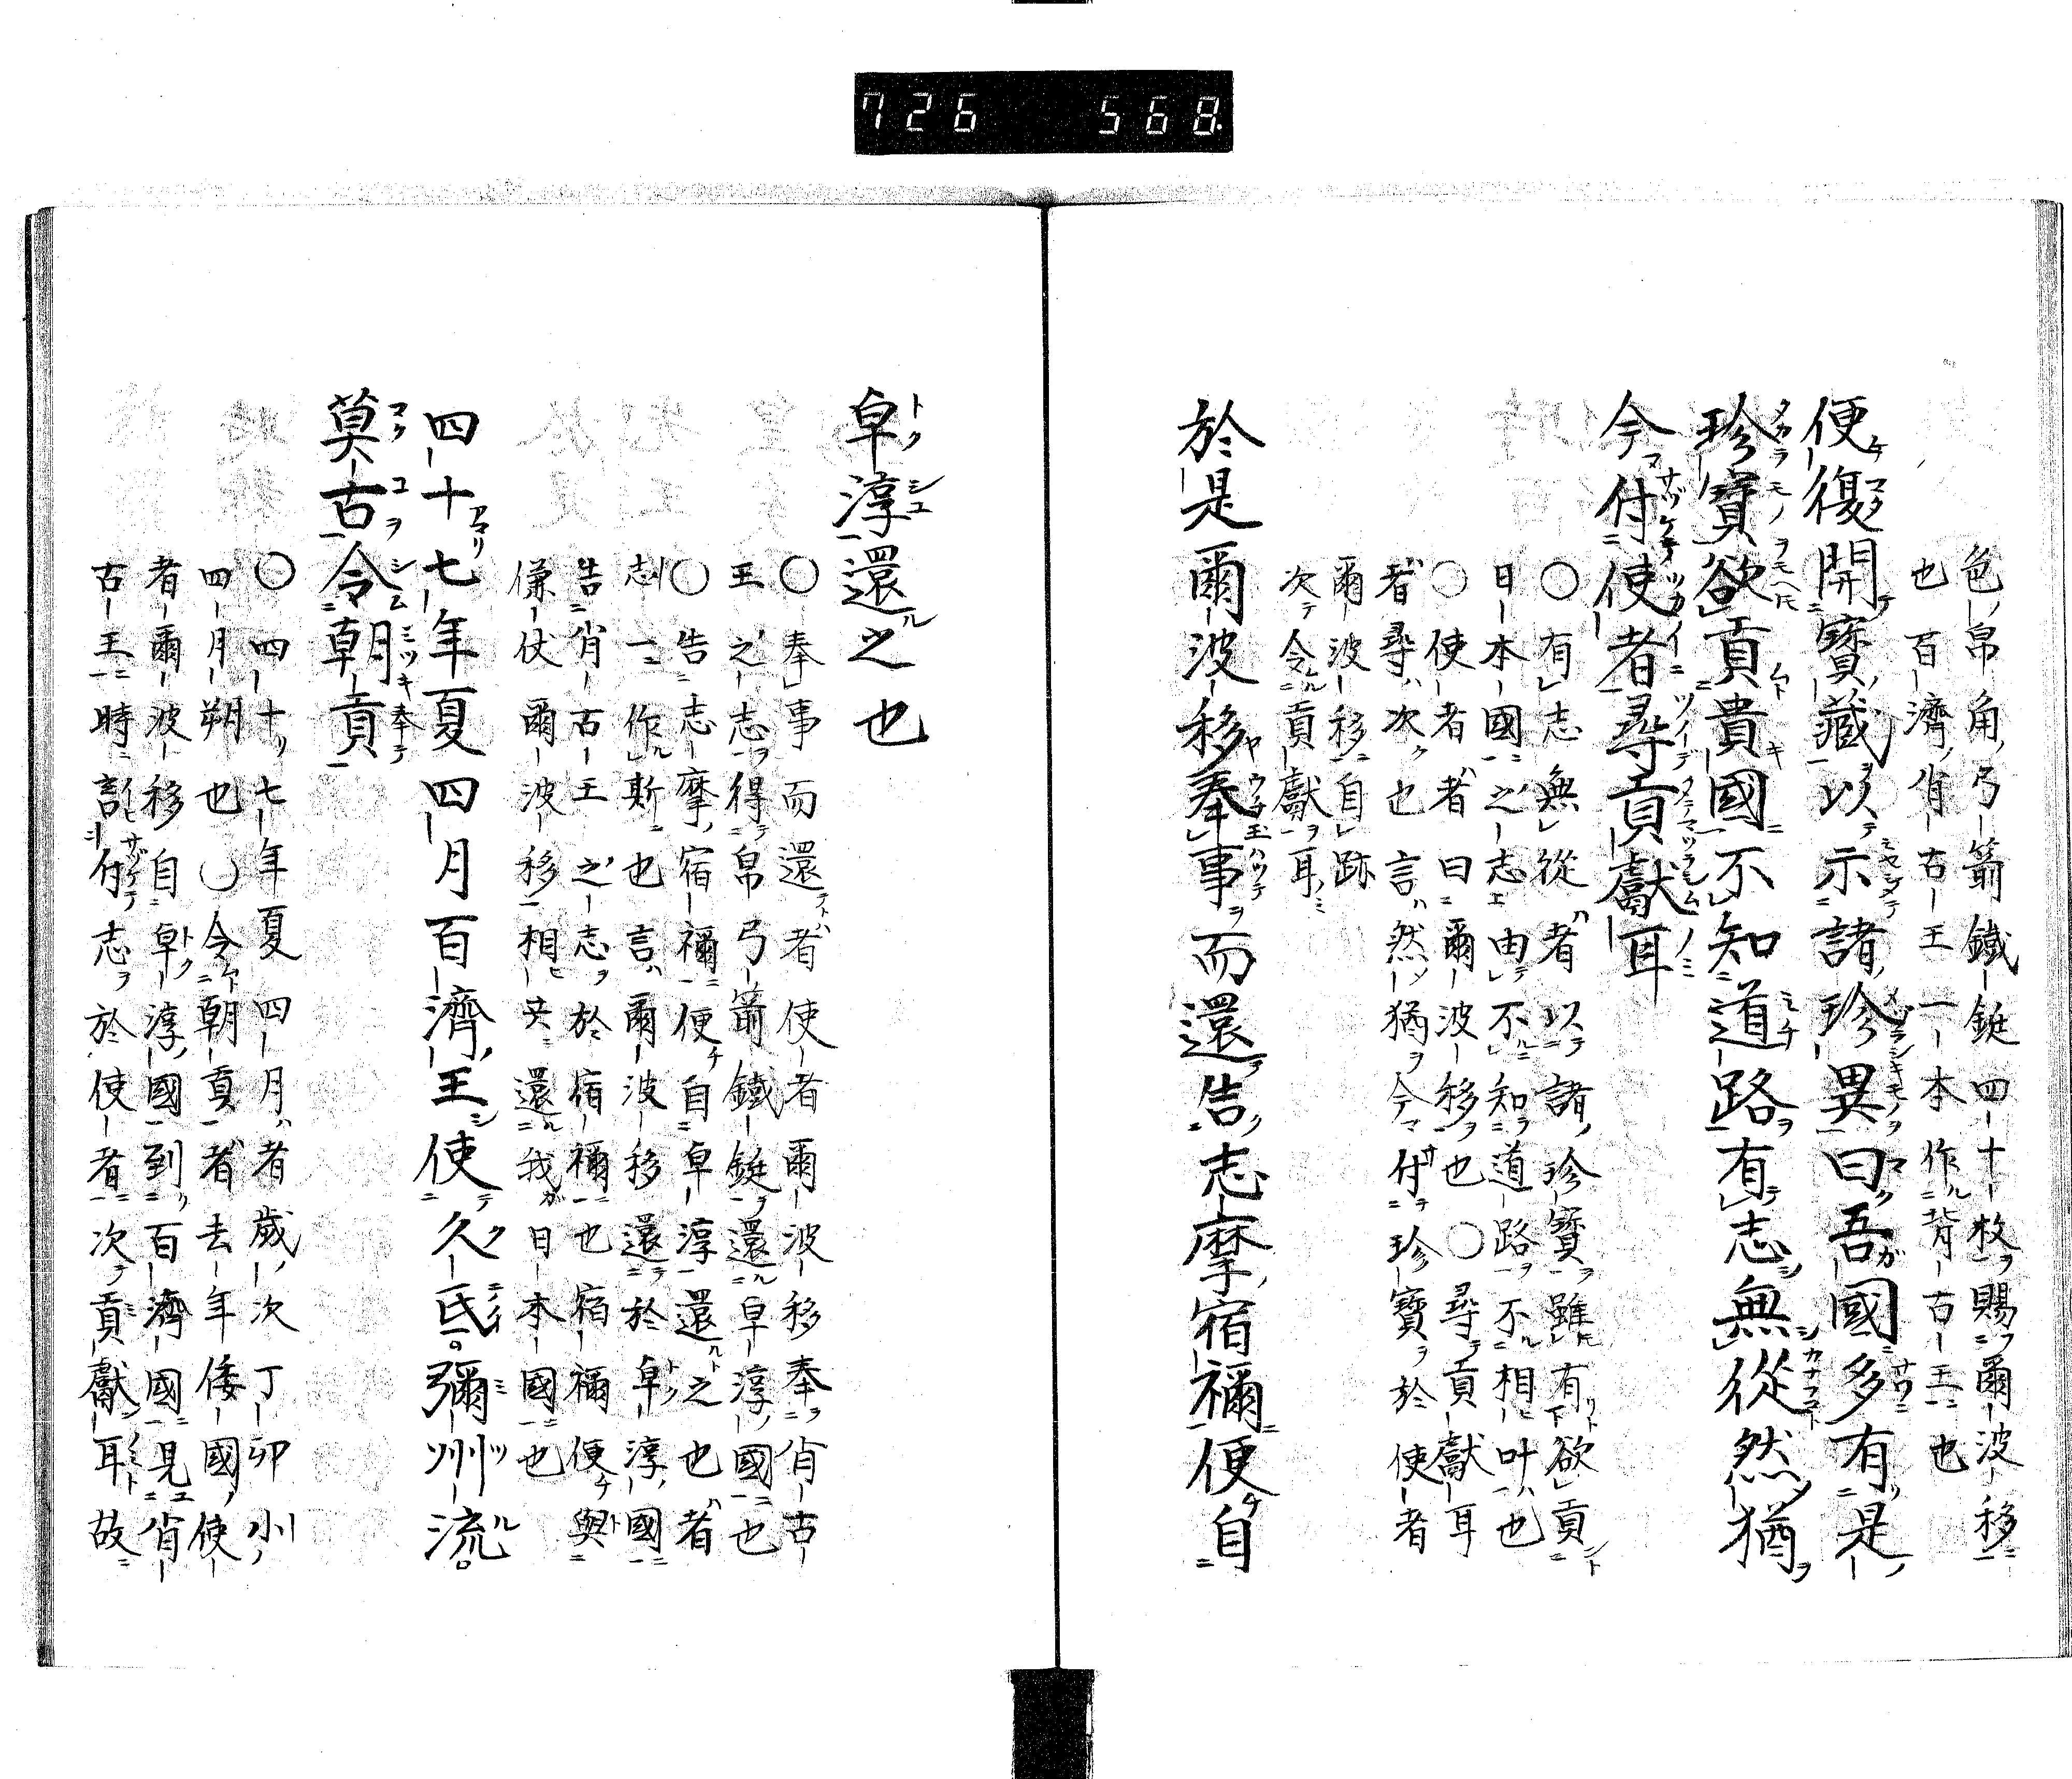 726 568
色帛角弓箭鐵鋌四十枚賜爾波移
也百濟肖古王一本作背古王也
便復開寳藏以示諸珍異曰吾國多有是
珍寳欲貢貴國不知道路有志無從然猶
今付使者尋貢獻耳
○有志無從者以諸珍寳雖有欲貢
日本國之志由不知道路不相叶也
○使者者曰爾波移也○尋貢獻耳
者尋次也言然猶今付珍寳於使者
爾波移自跡
次令貢獻耳
於是爾波移奉事而還告志摩宿禰便自
卓淳還之也
○奉事而還者使者爾波移奉肖古
王之志得帛弓箭鐵鋌還卓淳國也
○告志摩宿禰便自卓淳還之也者
志一作斯也言爾波移還於卓淳國
告肖古王之志於宿禰也宿禰便與
傔仗爾波移相共還我日本國也
四十七年夏四月百濟王使久氐彌州流
莫古令朝貢
○四十七年夏四月者歲次丁卯小
四月朔也○令朝貢者去年倭國使
者爾波移自卓淳國到百濟國見肖
古王時言付志於使者次貢獻耳故